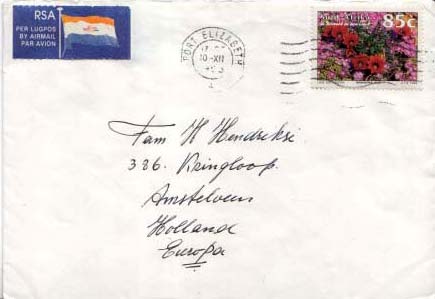 RSA
PER LUGPOS
BY AIRMAIL
PAR AVION
PORT ELIZABETH
10-XII
85c
Fam H Hendriksi
386. Kringloop.
Amstelveen
Holland
Europa